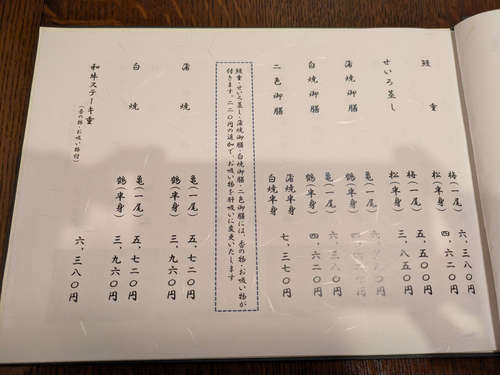 鰻重
梅(一尾) 六、三八〇円
松(半身) 四、六二〇円
せいろ蒸し
梅(一尾) 五、五〇〇円
松(半身) 三、八五〇円
蒲焼御膳
亀(一尾)
鶴(半身)
白焼御膳
亀(一尾)
鶴(半身) 四、六二〇円
二色御膳
蒲焼半身
白焼半身
七、三七〇円
鰻重・せいろ蒸し・蒲焼御膳・白焼御膳・二色御膳には、香の物・お吸い物が
付きます。二二〇円の追加で、お吸い物を肝吸いに変更いたします
蒲焼
亀(一尾) 五、七二〇円
鶴(半身) 三、九六〇円
白焼
亀(一尾) 五、七二〇円
鶴(半身) 三、九六〇円
和牛ステーキ重 六、三八〇円
(香の物・お吸い物付)